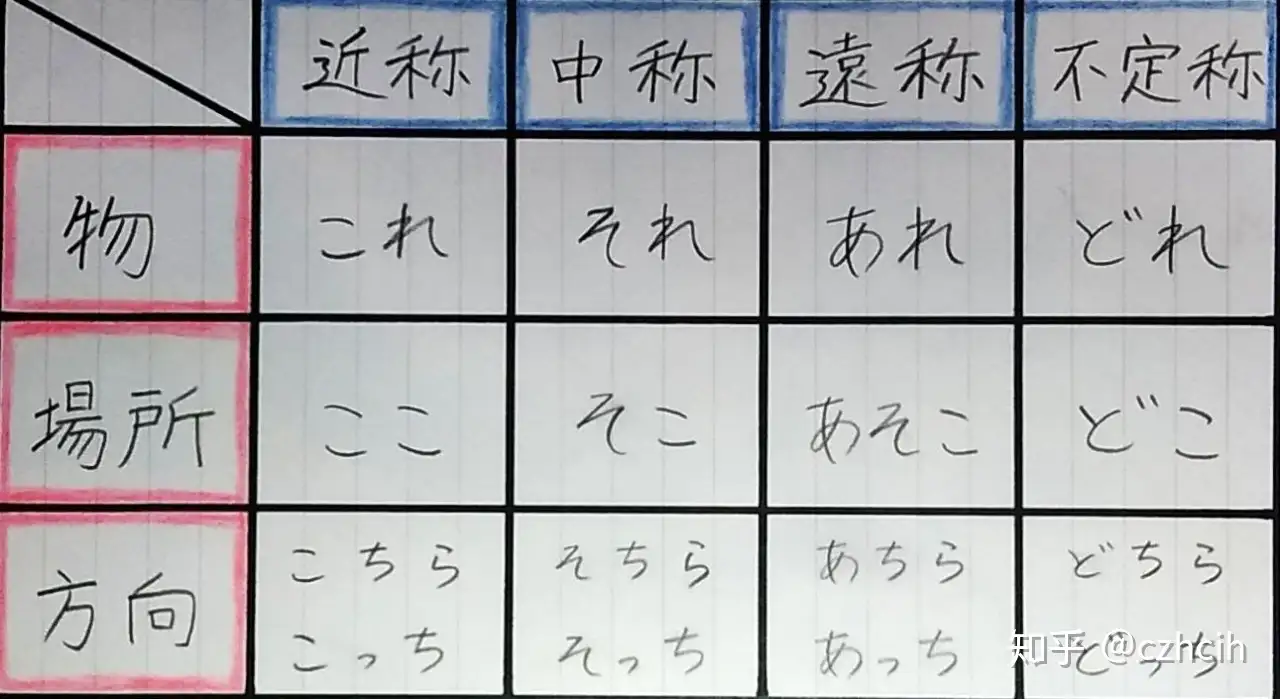 近称 中称 遠称 不定称
物 これ それ あれ どれ
場所 ここ そこ あそこ どこ
方向 こちら そちら あちら どちら
こっち そっち あっち どっち
知乎 @czhcih